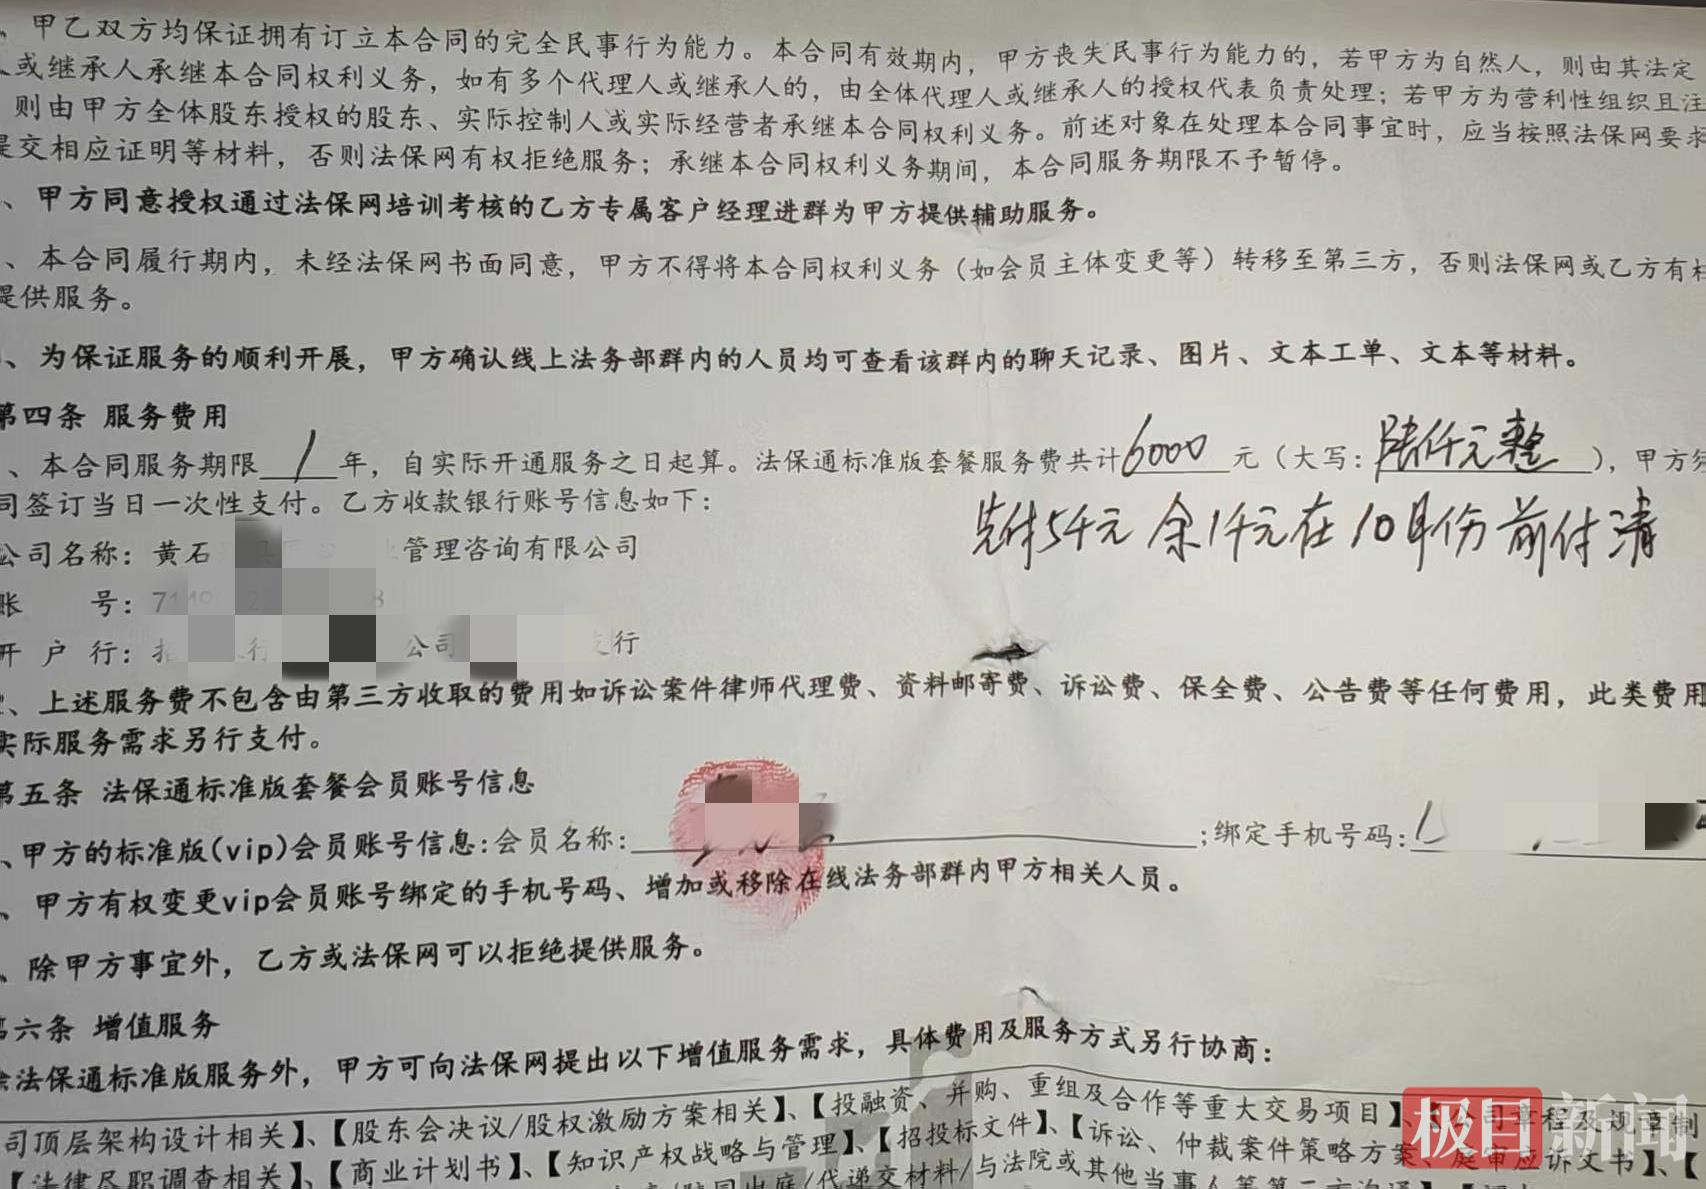 、甲乙双方均保证拥有订立本合同的完全民事行为能力。本合同有效期内，甲方丧失民事行为能力的，若甲方为自然人，则由其法定
人或继承人承继本合同权利义务，如有多个代理人或继承人的，由全体代理人或继承人的授权代表负责处理；若甲方为营利性组织且注
则由甲方全体股东授权的股东、实际控制人或实际经营者承继本合同权利义务。前述对象在处理本合同事宜时，应当按照法保网要求
提交相应证明等材料，否则法保网有权拒绝服务；承继本合同权利义务期间，本合同服务期限不予暂停。
、甲方同意授权通过法保网培训考核的乙方专属客户经理进群为甲方提供辅助服务。
、本合同履行期内，未经法保网书面同意，甲方不得将本合同权利义务（如会员主体变更等）转移至第三方，否则法保网或乙方有权
提供服务。
、为保证服务的顺利开展，甲方确认线上法务部群内的人员均可查看该群内的聊天记录、图片、文本工单、文本等材料。
第四条 服务费用
、本合同服务期限 1 年，自实际开通服务之日起算。法保通标准版套餐服务费共计6000 元（大写：陆仟元整），甲方须
同签订当日一次性支付。乙方收款银行账号信息如下：
先付5千元 余1千元在10月份前付清
公司名称：黄石 管理咨询有限公司
账 号：
开 户 行：招 行 公司 支行
、上述服务费不包含由第三方收取的费用如诉讼案件律师代理费、资料邮寄费、诉讼费、保全费、公告费等任何费用，此类费用
实际服务需求另行支付。
第五条 法保通标准版套餐会员账号信息
、甲方的标准版(vip)会员账号信息:会员名称: ;绑定手机号码:
、甲方有权变更vip会员账号绑定的手机号码、增加或移除在线法务部群内甲方相关人员。
、除甲方事宜外，乙方或法保网可以拒绝提供服务。
第六条 增值服务
除法保通标准版服务外，甲方可向法保网提出以下增值服务需求，具体费用及服务方式另行协商：
司顶层架构设计相关】、【股东会决议/股权激励方案相关】、【投融资、并购、重组及合作等重大交易项目】、【公司章程及规章制
【法律尽职调查相关】、【商业计划书】、【知识产权战略与管理】、【招投标文件】、【诉讼、仲裁案件策略方案、庭审应诉文书】、【
/陪同出庭/代递交材料/与法院或其他当事人等第三方沟通】
极目新闻